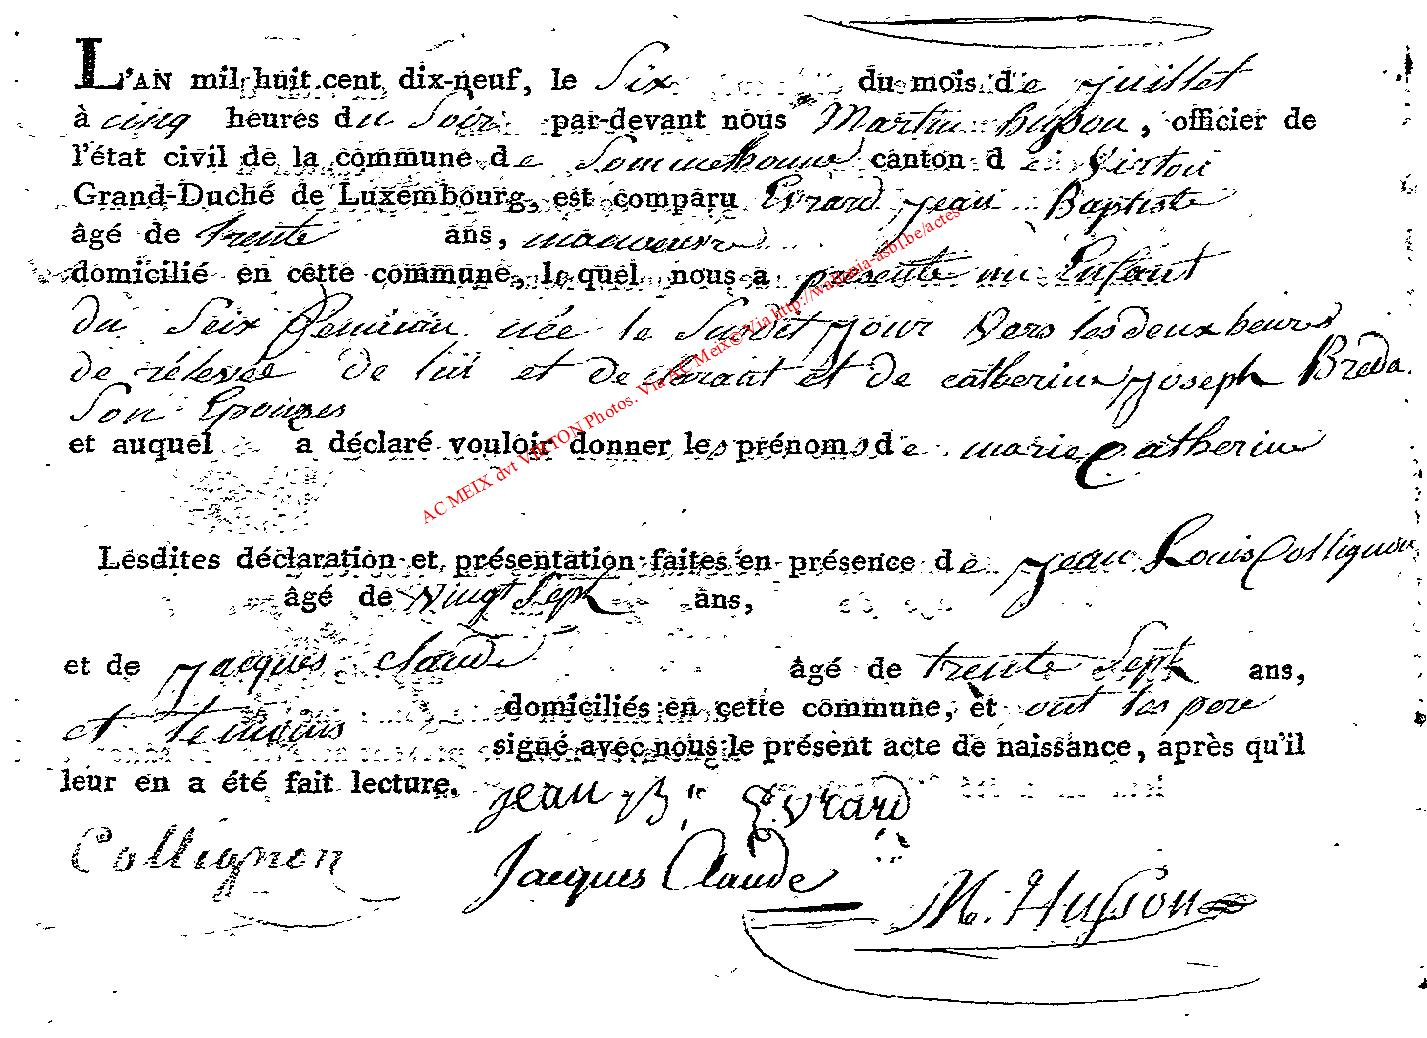 L'AN mil huit cent dix-neuf, le Six du mois de juillet
à cinq heures du Soir par-devant nous Martin husson, officier de
l'état civil de la commune de Sommethonne canton de Virton
Grand-Duché de Luxembourg, est comparu Evrard jean Baptiste
âgé de trente ans, manoeuvre
domicilié en cette commune, lequel nous a présenté un Enfant
du Seix feminin née le Surdit jour vers les deux heures
de rélevée de lui et declarant et de catherine joseph Breda
Son Epouzes
et auquel a déclaré vouloir donner les prénoms de marie Catherine
AC MEIX dvt VIRTON Photos. Via AC Meix© Via http://wallonia-asbl.be/actes
Lesdites déclaration et présentation faites en présence de jean Louis Collignon
âgé de vingt Sept ans,
et de jacques claude âgé de trente Sept ans,
domiciliés en cette commune, et ont les pere
et temoins signé avec nous le présent acte de naissance, après qu'il
leur en a été fait lecture. jean Bte Evrard
Collignon Jacques Claude
M. Husson